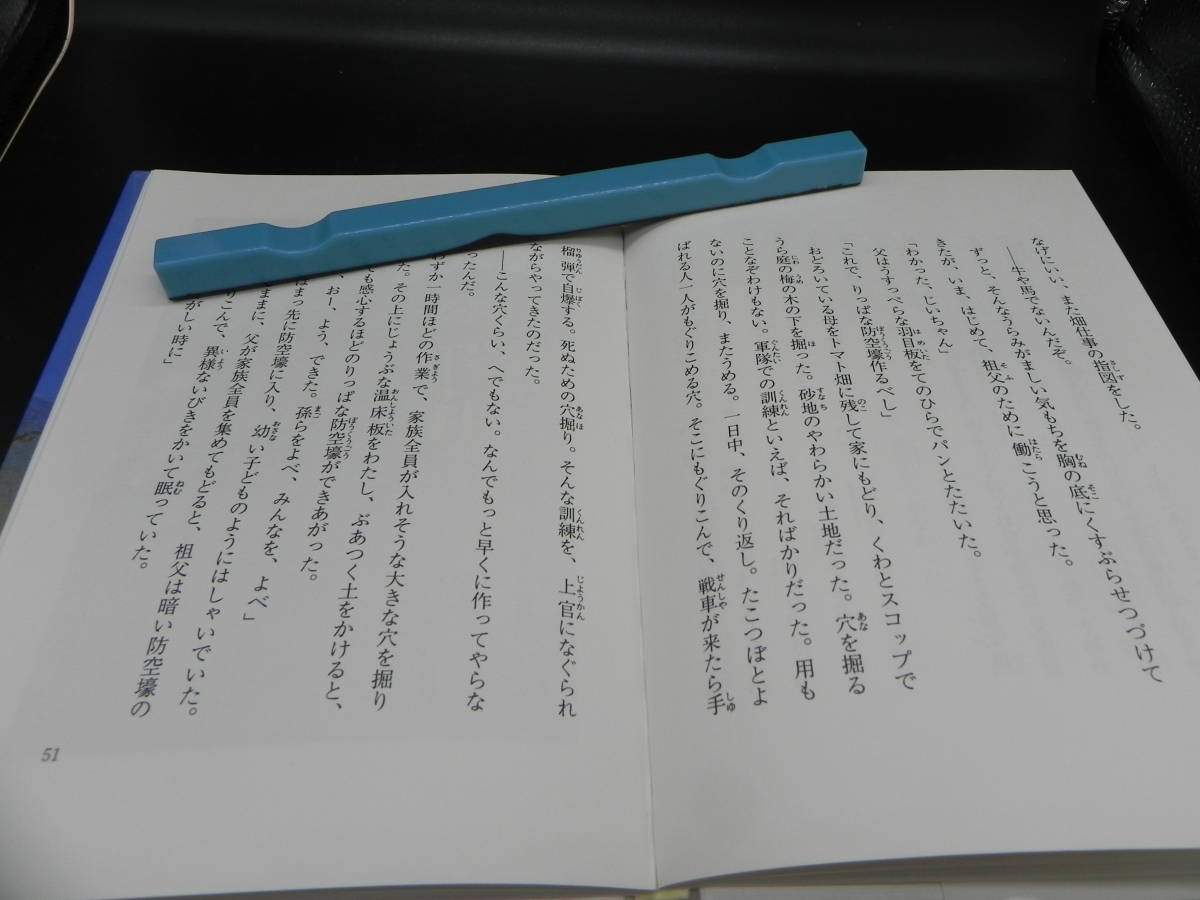 なげにいい、また畑仕事の指図をした。
――牛や馬でないんだぞ。
ずっと、そんなうらみがましい気もちを胸の底にくすぶらせつづけて
きたが、いま、はじめて、祖父のために働こうと思った。
「わかった、じいちゃん」
父はうすっぺらな羽目板をてのひらでパンとたたいた。
「これで、りっぱな防空壕作るべし」
おどろいている母をトマト畑に残して家にもどり、くわとスコップで
うら庭の梅の木の下を掘った。砂地のやわらかい土地だった。穴を掘る
ことなぞわけもない。軍隊での訓練といえば、そればかりだった。用も
ないのに穴を掘り、またうめる。一日中、そのくり返し。たこつぼとよ
ばれる人一人がもぐりこめる穴。そこにもぐりこんで、戦車が来たら手
榴弾で自爆する。死ぬための穴掘り。そんな訓練を、上官になぐられ
ながらやってきたのだった。
――こんな穴くらい、へでもない。なんでもっと早くに作ってやらな
ったんだ。
わずか一時間ほどの作業で、家族全員が入れそうな大きな穴を掘り
た。その上にじょうぶな温床板をわたし、ぶあつく土をかけると、
でも感心するほどのりっぱな防空壕ができあがった。
、おー、よう、できた。孫らをよべ、みんなを、よべ」
はまっ先に防空壕に入り、幼い子どものようにはしゃいでいた。
ままに、父が家族全員を集めてもどると、祖父は暗い防空壕の
りこんで、異様ないびきをかいて眠っていた。
がしい時に」
51